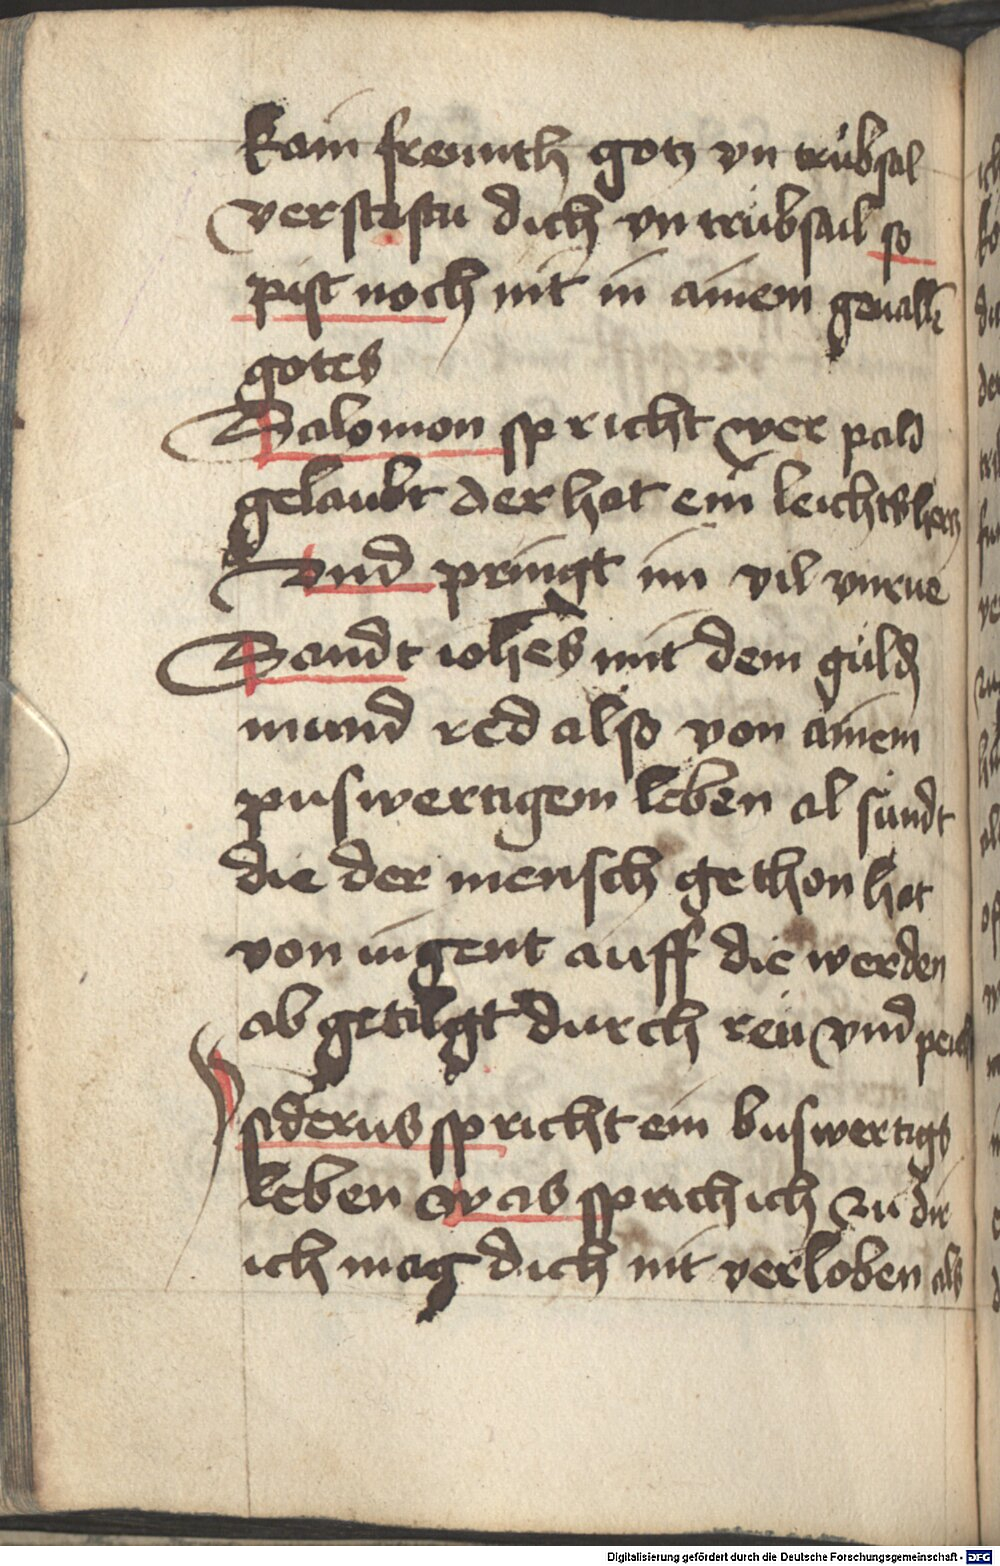 kain freunth gotz vn trübsal
verstestu dich vn trübsail so
pist noch nit in ainem geuallē
gotes
Salomon spricht wer pald
gelaubt der hat ein leichts hertz
Vnd pringt im vil vnrue
Sandt ioh̄es mit dem güldē
mund red also von ainem
puswertigem leben al sündt
die der mensch gethon hat
von iugent auff die werden
ab getilgt durch reü vnd peich
Ysiderus spricht ein buswertigs
leben was sprich ich zu dir
ich mag dich nit verloben als
Digitalisierung gefördert durch die Deutsche Forschungsgemeinschaft - DFG